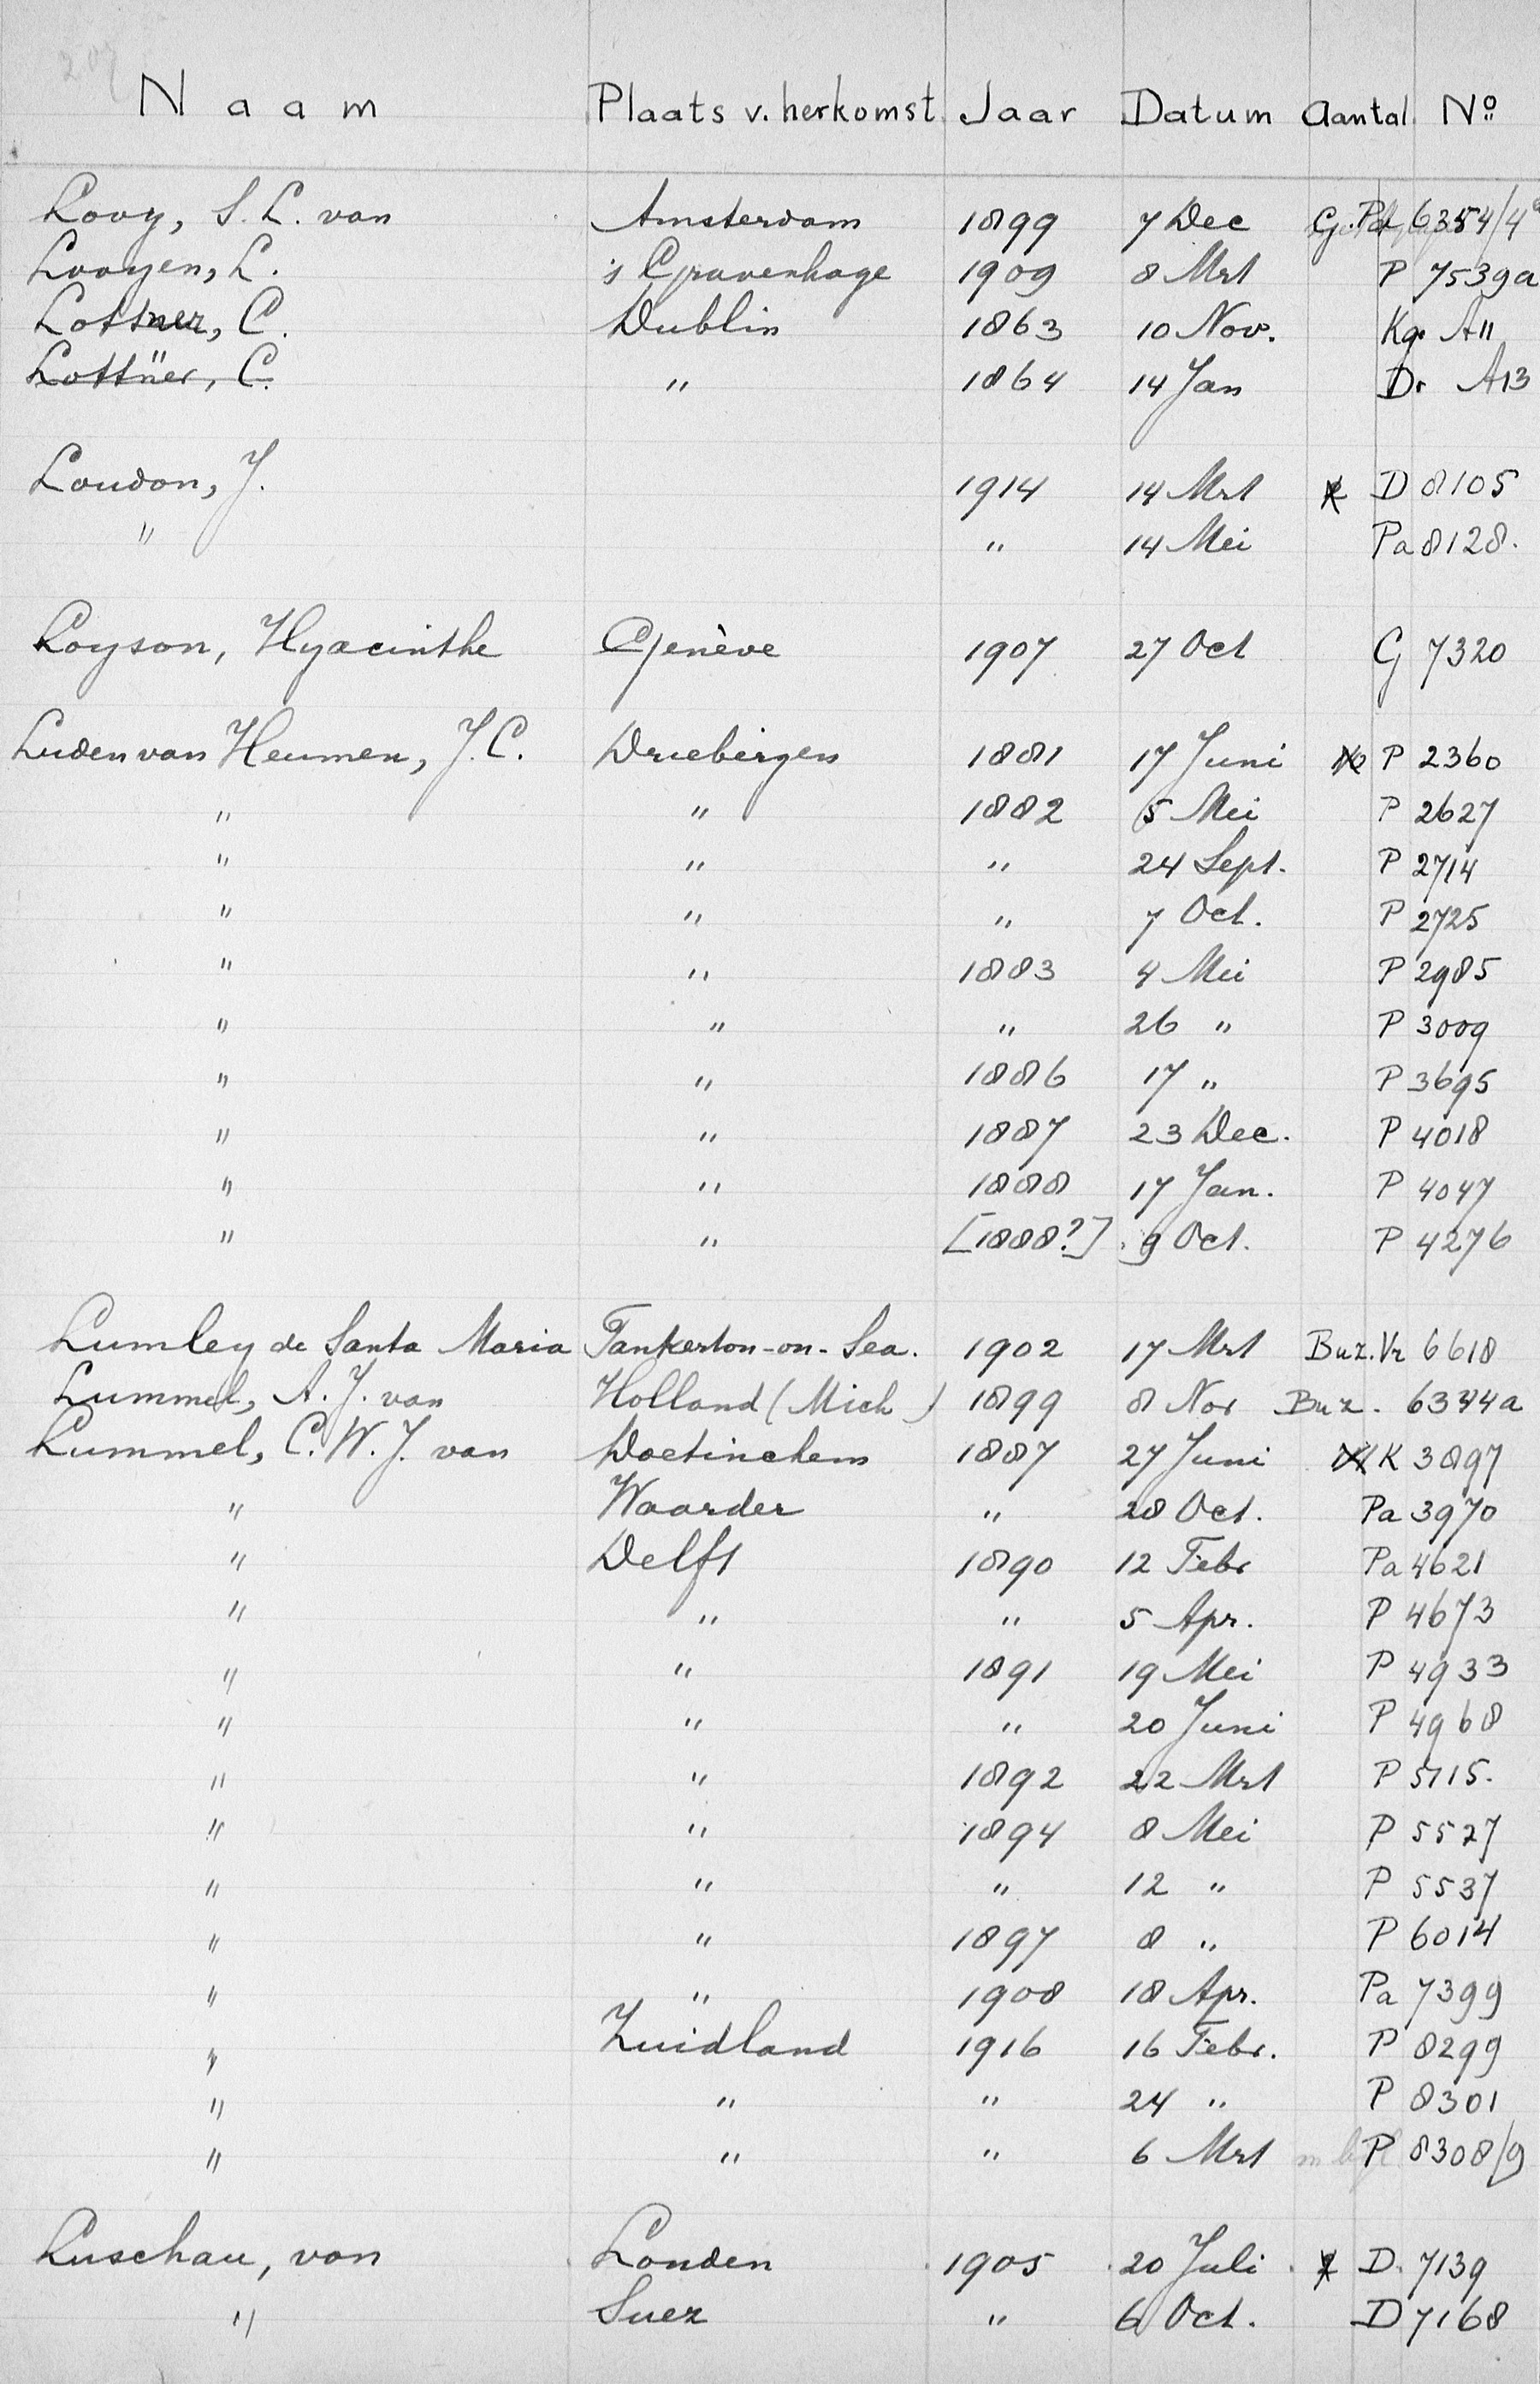 207
Naam Plaats v. herkomst Jaar Datum Aantal No
Looy, S. L. van Amsterdam 1899 7 Dec G. Pa 6354/4a
Looyen, L. 's Gravenhage 1909 8 Mrt P 7539a
Lottner, C. Dublin 1863 10 Nov. Kg. A11
Lottner, C. " 1864 14 Jan Dr A13
Loudon, J. 1914 14 Mrt D 8105
" " 14 Mei Pa 8128.
Loyson, Hyacinthe Genève 1907 27 Oct G 7320
Luden van Heumen, J. C. Driebergen 1881 17 Juni P 2360
" " 1882 5 Mei P 2627
" " " 24 Sept. P 2714
" " " 7 Oct. P 2725
" " 1883 4 Mei P 2985
" " " 26 " P 3009
" " 1886 17 " P 3695
" " 1887 23 Dec. P 4018
" " 1888 17 Jan. P 4047
" " [1888?] 9 Oct. P 4276
Lumley de Santa Maria Tankerton-on-Sea. 1902 17 Mrt Buz. Vr 6618
Lummel, A. J. van Holland (Mich) 1899 8 Nov Buz. 6344a
Lummel, C. W. J. van Doetinchem 1887 27 Juni K 3897
" Waarder " 28 Oct. Pa 3970
" Delft 1890 12 Febr Pa 4621
" " " 5 Apr. P 4673
" " 1891 19 Mei P 4933
" " " 20 Juni P 4968
" " 1892 22 Mrt P 5115.
" " 1894 8 Mei P 5527
" " " 12 " P 5537
" " 1897 8 " P 6014
" " 1908 18 Apr. Pa 7399
" Zuidland 1916 16 Febr. P 8299
" " " 24 " P 8301
" " " 6 Mrt P 8308/9
Luschau, von Londen 1905 20 Juli D. 7139
" Suez " 6 Oct. D 7168